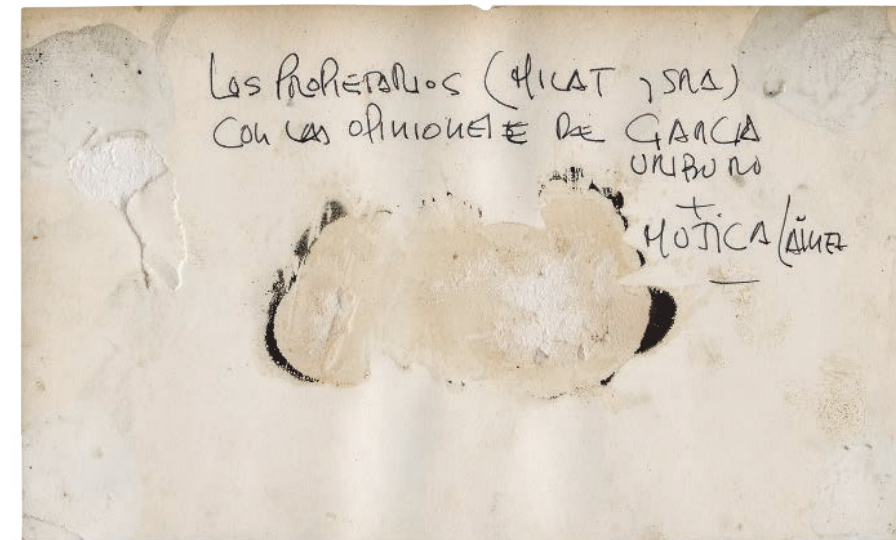 Los PROPIETARIOS (MILAT y SRA)
CON LAS OPINIONES DE GARCIA
URIBURO
+
MUJICA LAINEZ